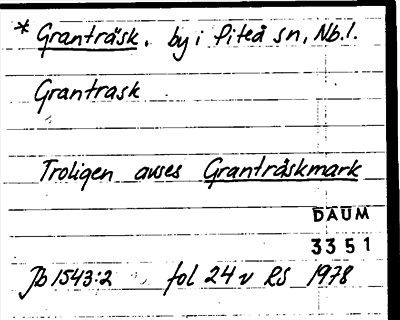 * Granträsk. by i Piteå sn, Nb.l.
Grantrask
Troligen avses Granträskmark
DAUM
3351
Jb 1543:2 fol 24 v RS 1978